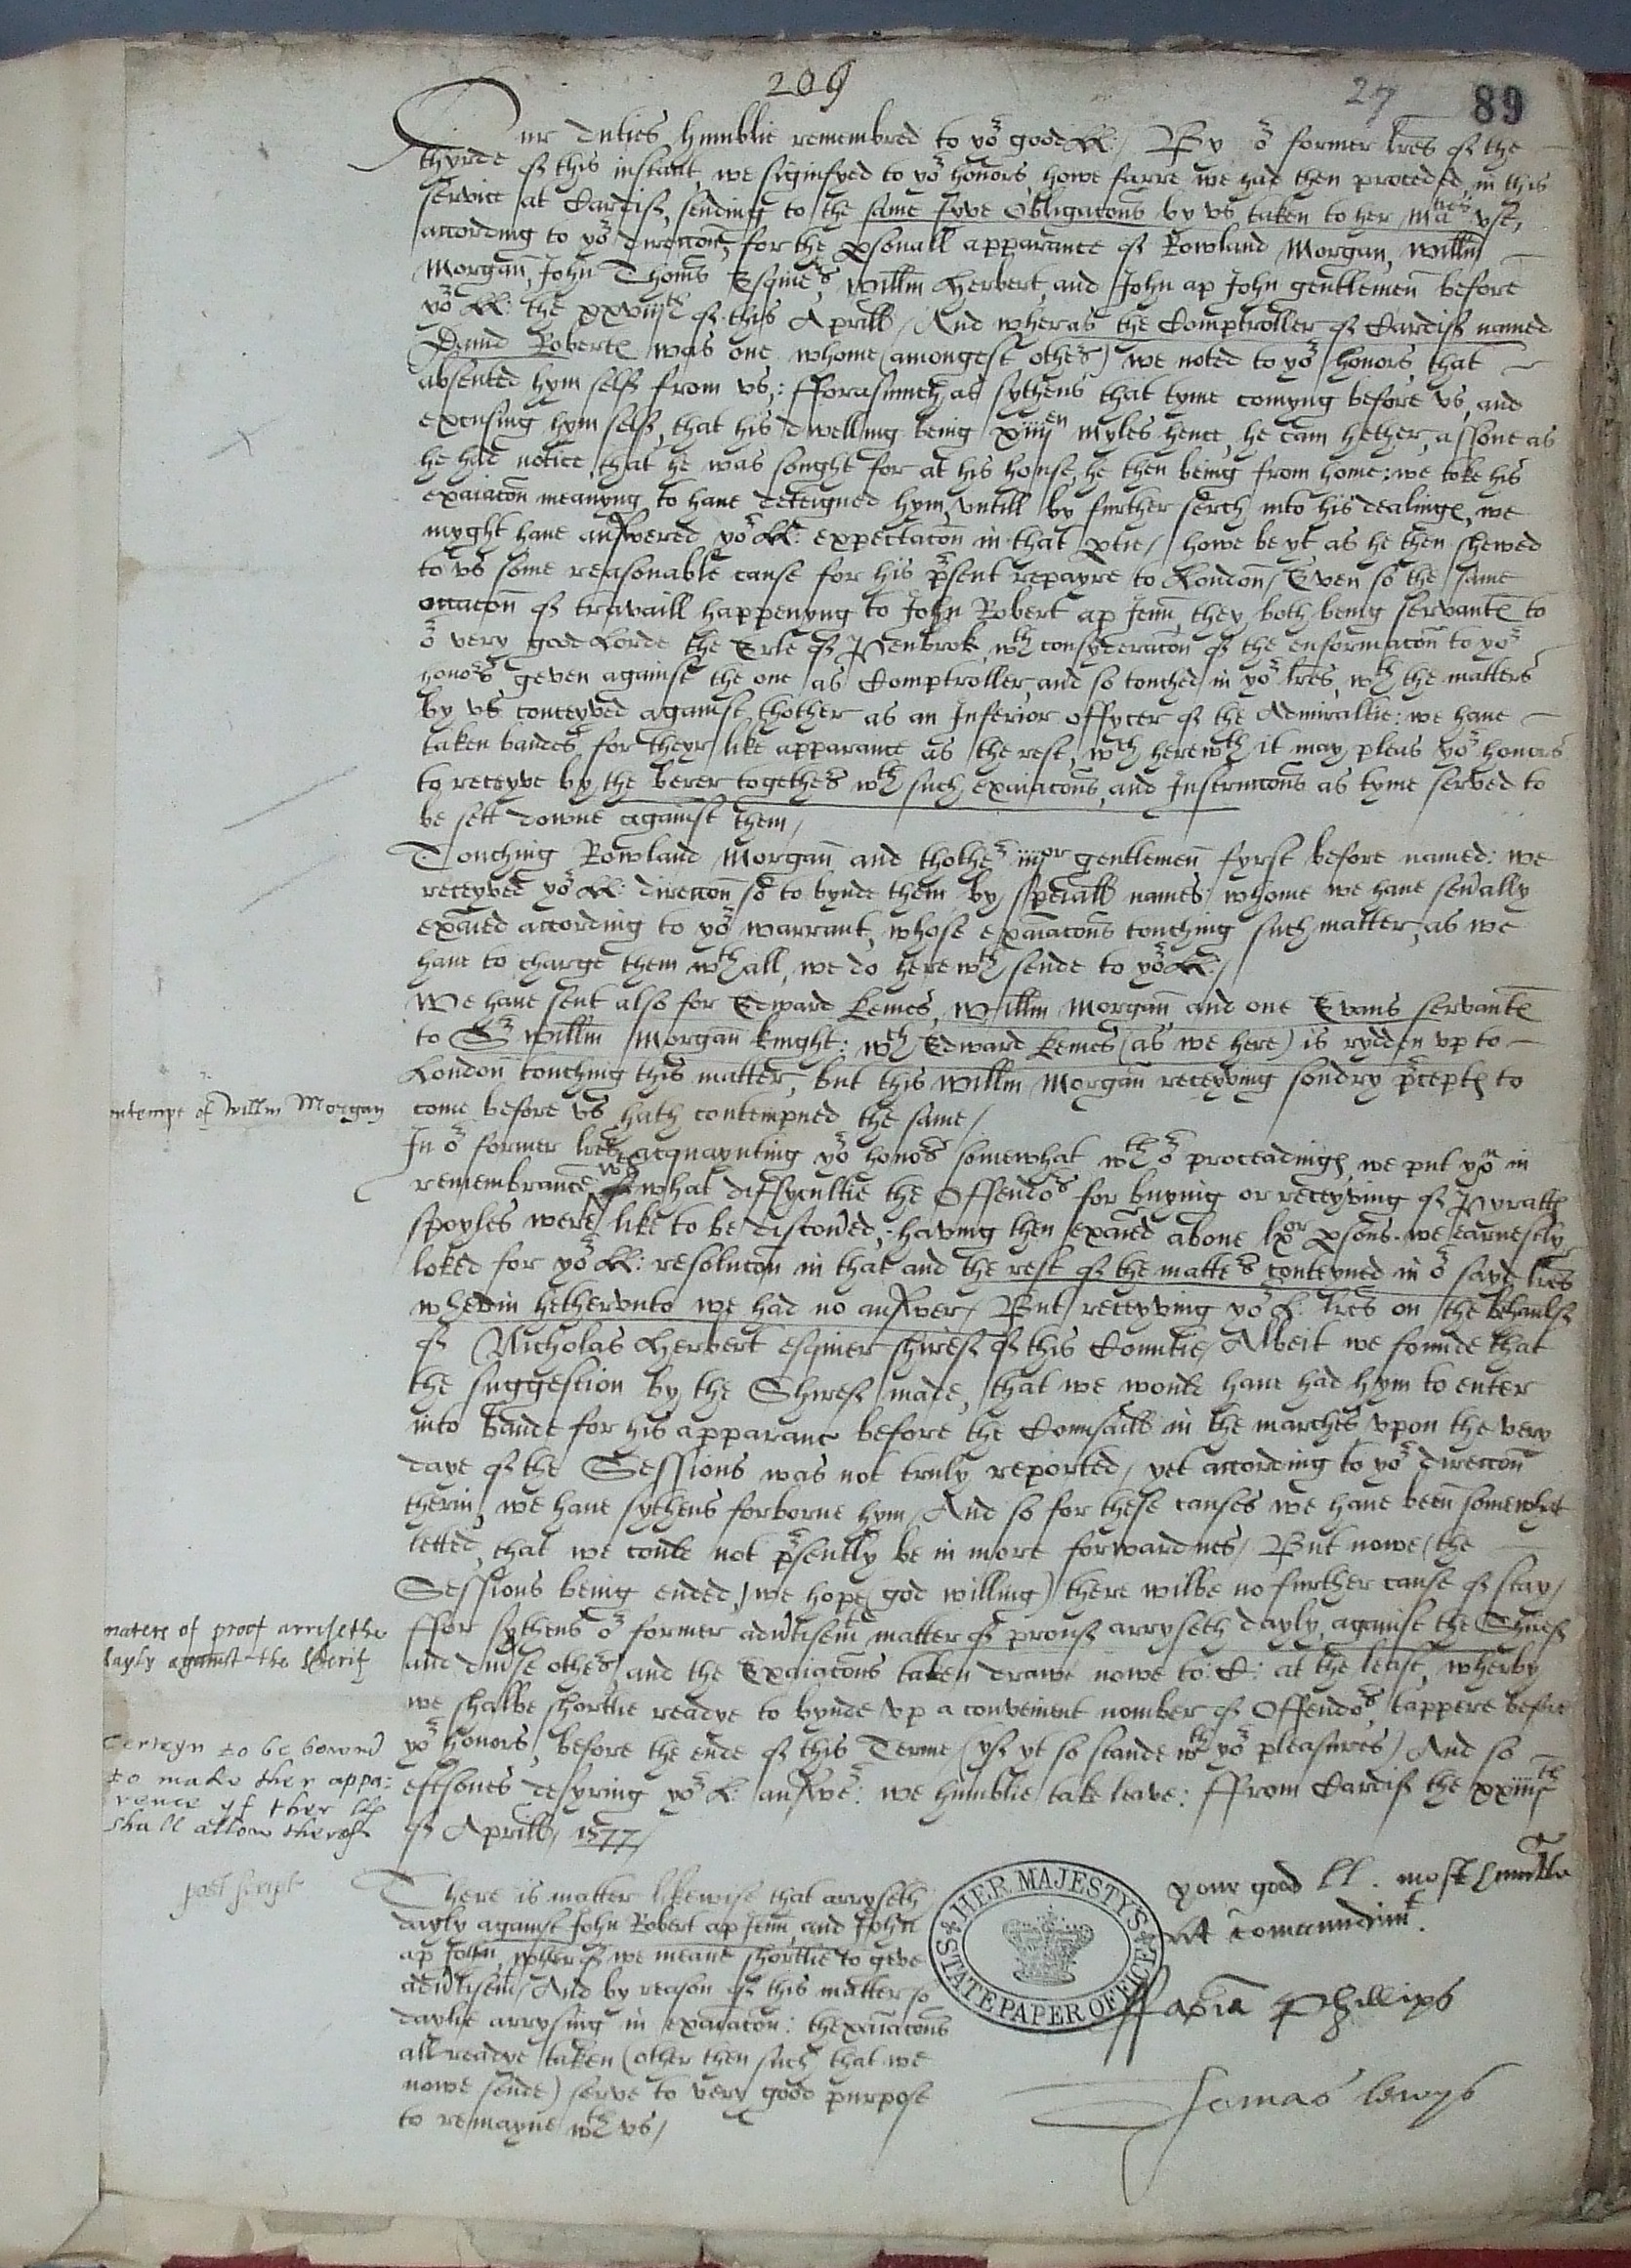 209
27 89
Our duties humblie remembred to yor good LL:/ By or former lres of the
thyrde of this instant, we signifyed to yor honors, howe farre we had then proceded, in this
service at Cardif, sending to the same fyve Obligacons by vs taken to her Maties vse,
according to yor direccon, for the psonall apparance of Rowland Morgan, Willm
Morgan, John Thoms Esquiers, Willm Herbert, and John ap John gentlemen before
yor LL: the xxviijth of this Aprill/ And wheras the Comptroller of Cardif named
David Robertes was one whome (amongest others) we noted to yor honors, that
absented hym self from vs,: fforasmuch as sythens that tyme comyng before vs, and
excusing hym self, that his dwelling being xiiijen myles hence, he cam hether, assone as
he had notice, that he was sought for at his house, he then being from home: we toke his
exaiacon meanyng to haue deteigned hym, vntill by further serch into his dealinges, we
myght haue answered yor LL: expectacon in that ptie/ howe be yt as he then shewed
to vs some reasonable cause for his psent repayre to London/ Even so the same
occacon of travaill happenyng to John Robert ap Jeun, they both being servantes to
or very good Lorde the Erle of Penbrok, wth consyderacon of the enformacon to yor
honors geven against the one as Comptroller, and so touched in yor lres, wth the matters
by vs conceyved against thother as an Inferior offycer of the Admiraltie: we haue
taken bandes for theyr like apparance as the rest, wch herewth it may pleas yor honors
to receyve by the berer together wth such exaiacons, and Instruccons as tyme served to
be sett downe against them/
Touching Rowland Morgan and thother iiijor gentlemen fyrst before named: we
receyved yor LL: direccon so to bynde them by speciall names whome we haue seually
exaied according to yor warrant, whose exaiacons touching such matter, as we
haue to charge them wthall, we do herewth sende to yor LL:/
We haue sent also for Edward Kemes, Willm Morgan and one Evans servantes
to Sr Willm Morgan knight: wch Edward Kemes (as we here) is rydden vp to
London touching this matter, but this Willm Morgan receyving sondry pceptes to
come before vs hath contempned the same/
ntempt of Willm Morgan
In or former lres acquaynting yor honors somewhat wth or proceadinges, we put you in
remembrance wth what diffycultie the Offendors for buying or receyving of Pyrattes
spoyles were like to be discoued,: having then exaied aboue lxor psons. we earnestly
loked for yor LL: resolucon in that and the rest of the matters conteyned in or sayd lres
wherin hethervnto we had no answer/ But receyving yor L: lres on the behaulf
of Nicholas Herbert esquier shiref of this Countie/ Albeit we founde that
the suggestion by the Shiref made, that we wolde haue had hym to enter
into bande for his apparance before the Counsaill in the marches vpon the very
daye of the Sessions was not truly reported, yet according to yor direccon
therin, we haue sythens forborne hym/ And so for these causes we haue been somewhat
letted, that we coulde not psently be in more forwardnes/ But nowe (the
Sessions being ended,) we hope (god willing) there wilbe no further cause of stay/
ffor sythens or former aduisemt matter of prouf arryseth dayly, against the Shiref
matere of proof arrisethe
dayly against the Sherif
and diuse others, and the Exaiacons taken drawe nowe to: C: at the least, wherby
we shalbe shortlie readye to bynde vp a convenient nomber of Offendors, tappere before
yor honors, before the ende of this Terme (yf yt so stande wth yor pleasures) And so
Certeyn to be bownd
to make ther appa:
rence yf ther lls
shall allow therof
eftsones desyring yor L: answer: we humblie take leave: ffrom Cardif the xxiiijth
of Aprill/ 1577/
post script
There is matter likewise that arryseth
dayly against John Robert ap Jeun, and John
ap John, wherof we meane shortlie to geve
aduisemt/ And by reason of this matter so
daylie arrysing in exaiacon: thexaiacons
allreadye taken (other then such that we
nowe sende) serve to very good purpose
to remayne wth vs/
your good ll. most humble
at comaundmt.
HER MAJESTY'S STATE PAPER OFFICE
ffabia Phillips
Tomas lewys